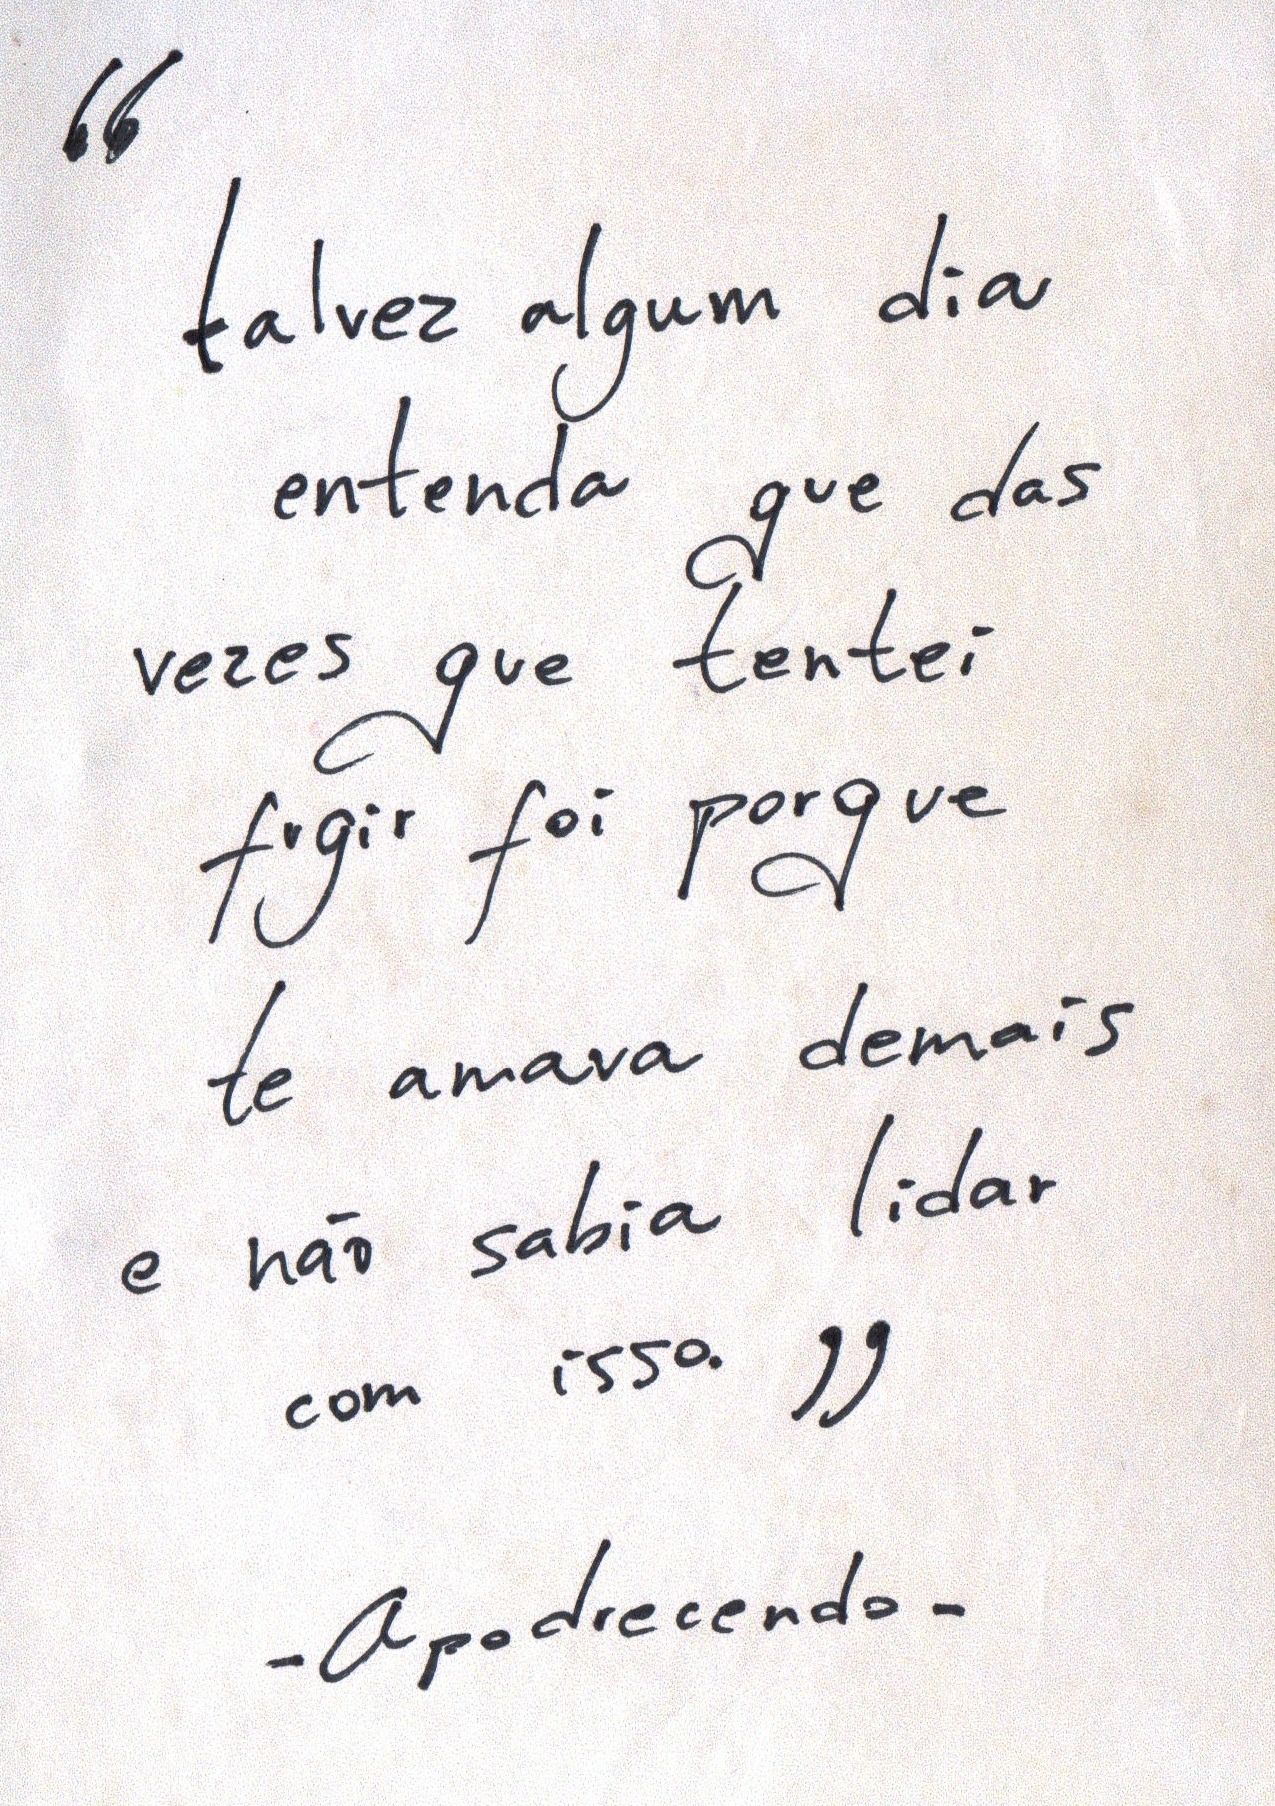 “
talvez algum dia
entenda que das
vezes que tentei
fugir foi porque
te amava demais
e não sabia lidar
com isso. ”
- Apodrecendo -